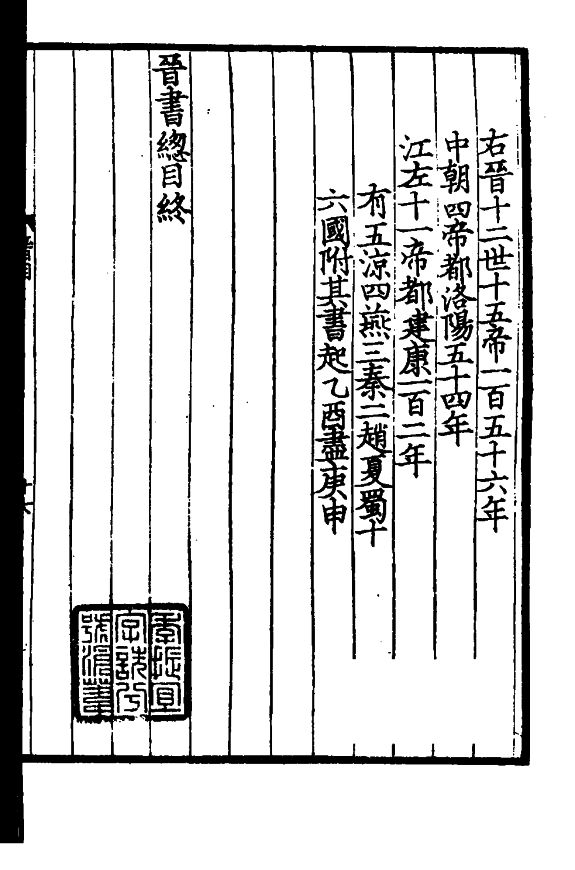 右晉十二世十五帝一百五十六年
中朝四帝都洛陽五十四年
江左十一帝都建康一百二年
有五涼四燕三秦二趙夏蜀十
六國附其書起乙酉盡庚申
晉書總目終
季振宜
字詵兮
號滄葦